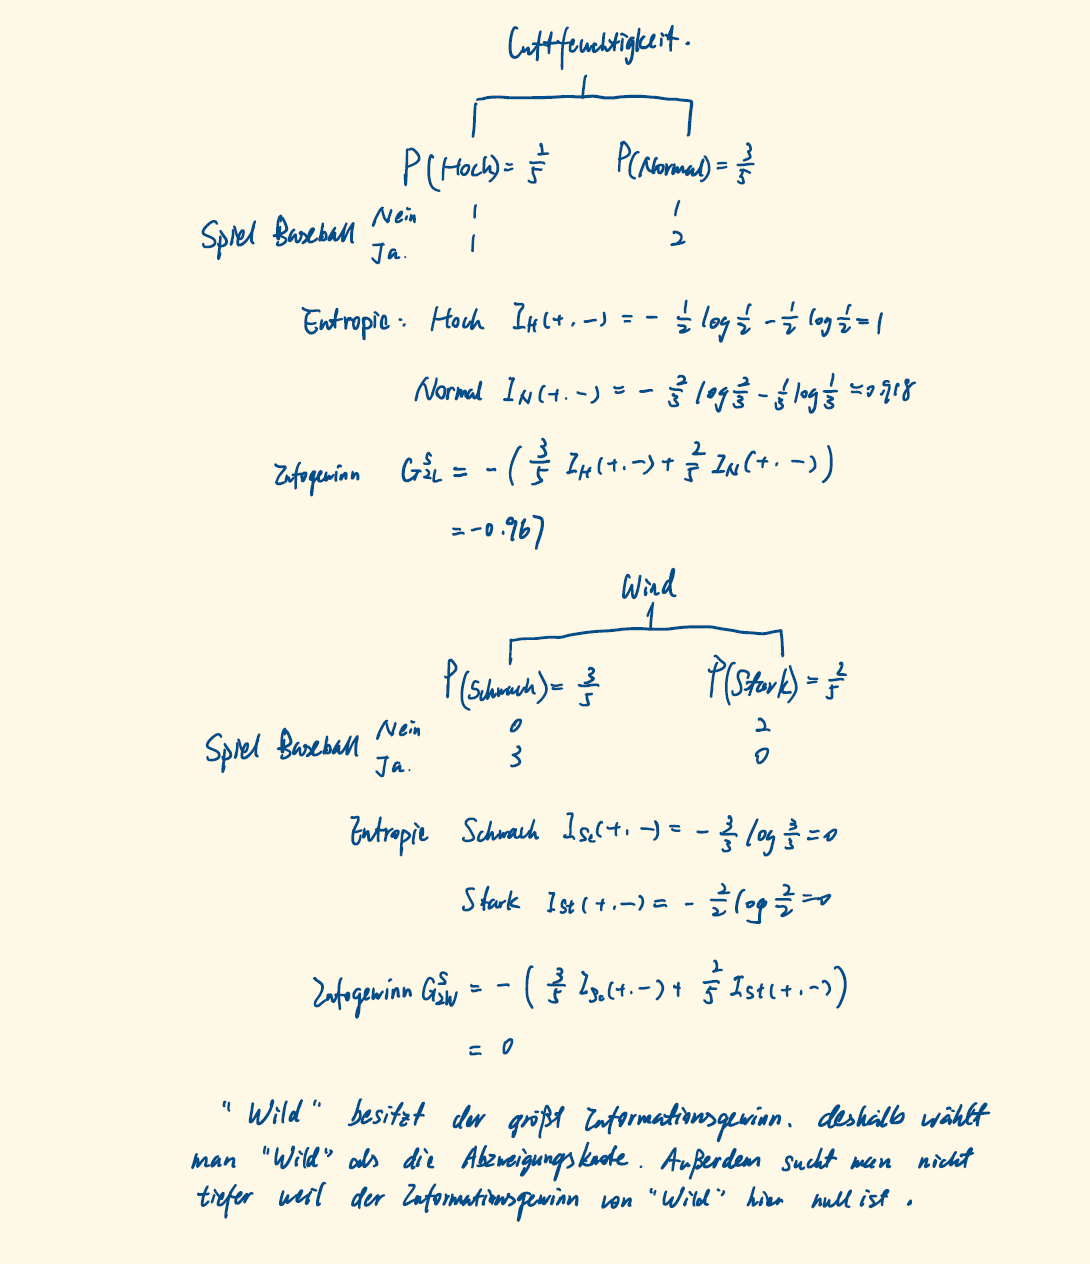 Luftfeuchtigkeit.
P(Hoch) = 2/5 P(Normal) = 3/5
Spiel Baseball Nein 1 1
Ja. 1 2
Entropie: Hoch I_H(+.-) = - 1/2 log 1/2 - 1/2 log 1/2 = 1
Normal I_N(+.-) = - 2/3 log 2/3 - 1/3 log 1/3 = 0.918
Infogewinn G^S_2L = - ( 3/5 I_H(+.-) + 2/5 I_N(+.-) )
= -0.967
Wind
P(Schwach) = 3/5 P(Stark) = 2/5
Spiel Baseball Nein 0 2
Ja. 3 0
Entropie Schwach I_Sc(+.-) = - 3/3 log 3/3 = 0
Stark I_St(+.-) = - 2/2 log 2/2 = 0
Infogewinn G^S_2W = - ( 3/5 I_Sc(+.-) + 2/5 I_St(+.-) )
= 0
"Wild" besitzt der größt Informationsgewinn. deshalb wählt
man "Wild" als die Abzweigungsknote. Außerdem sucht man nicht
tiefer weil der Informationsgewinn von "Wild" hier null ist.